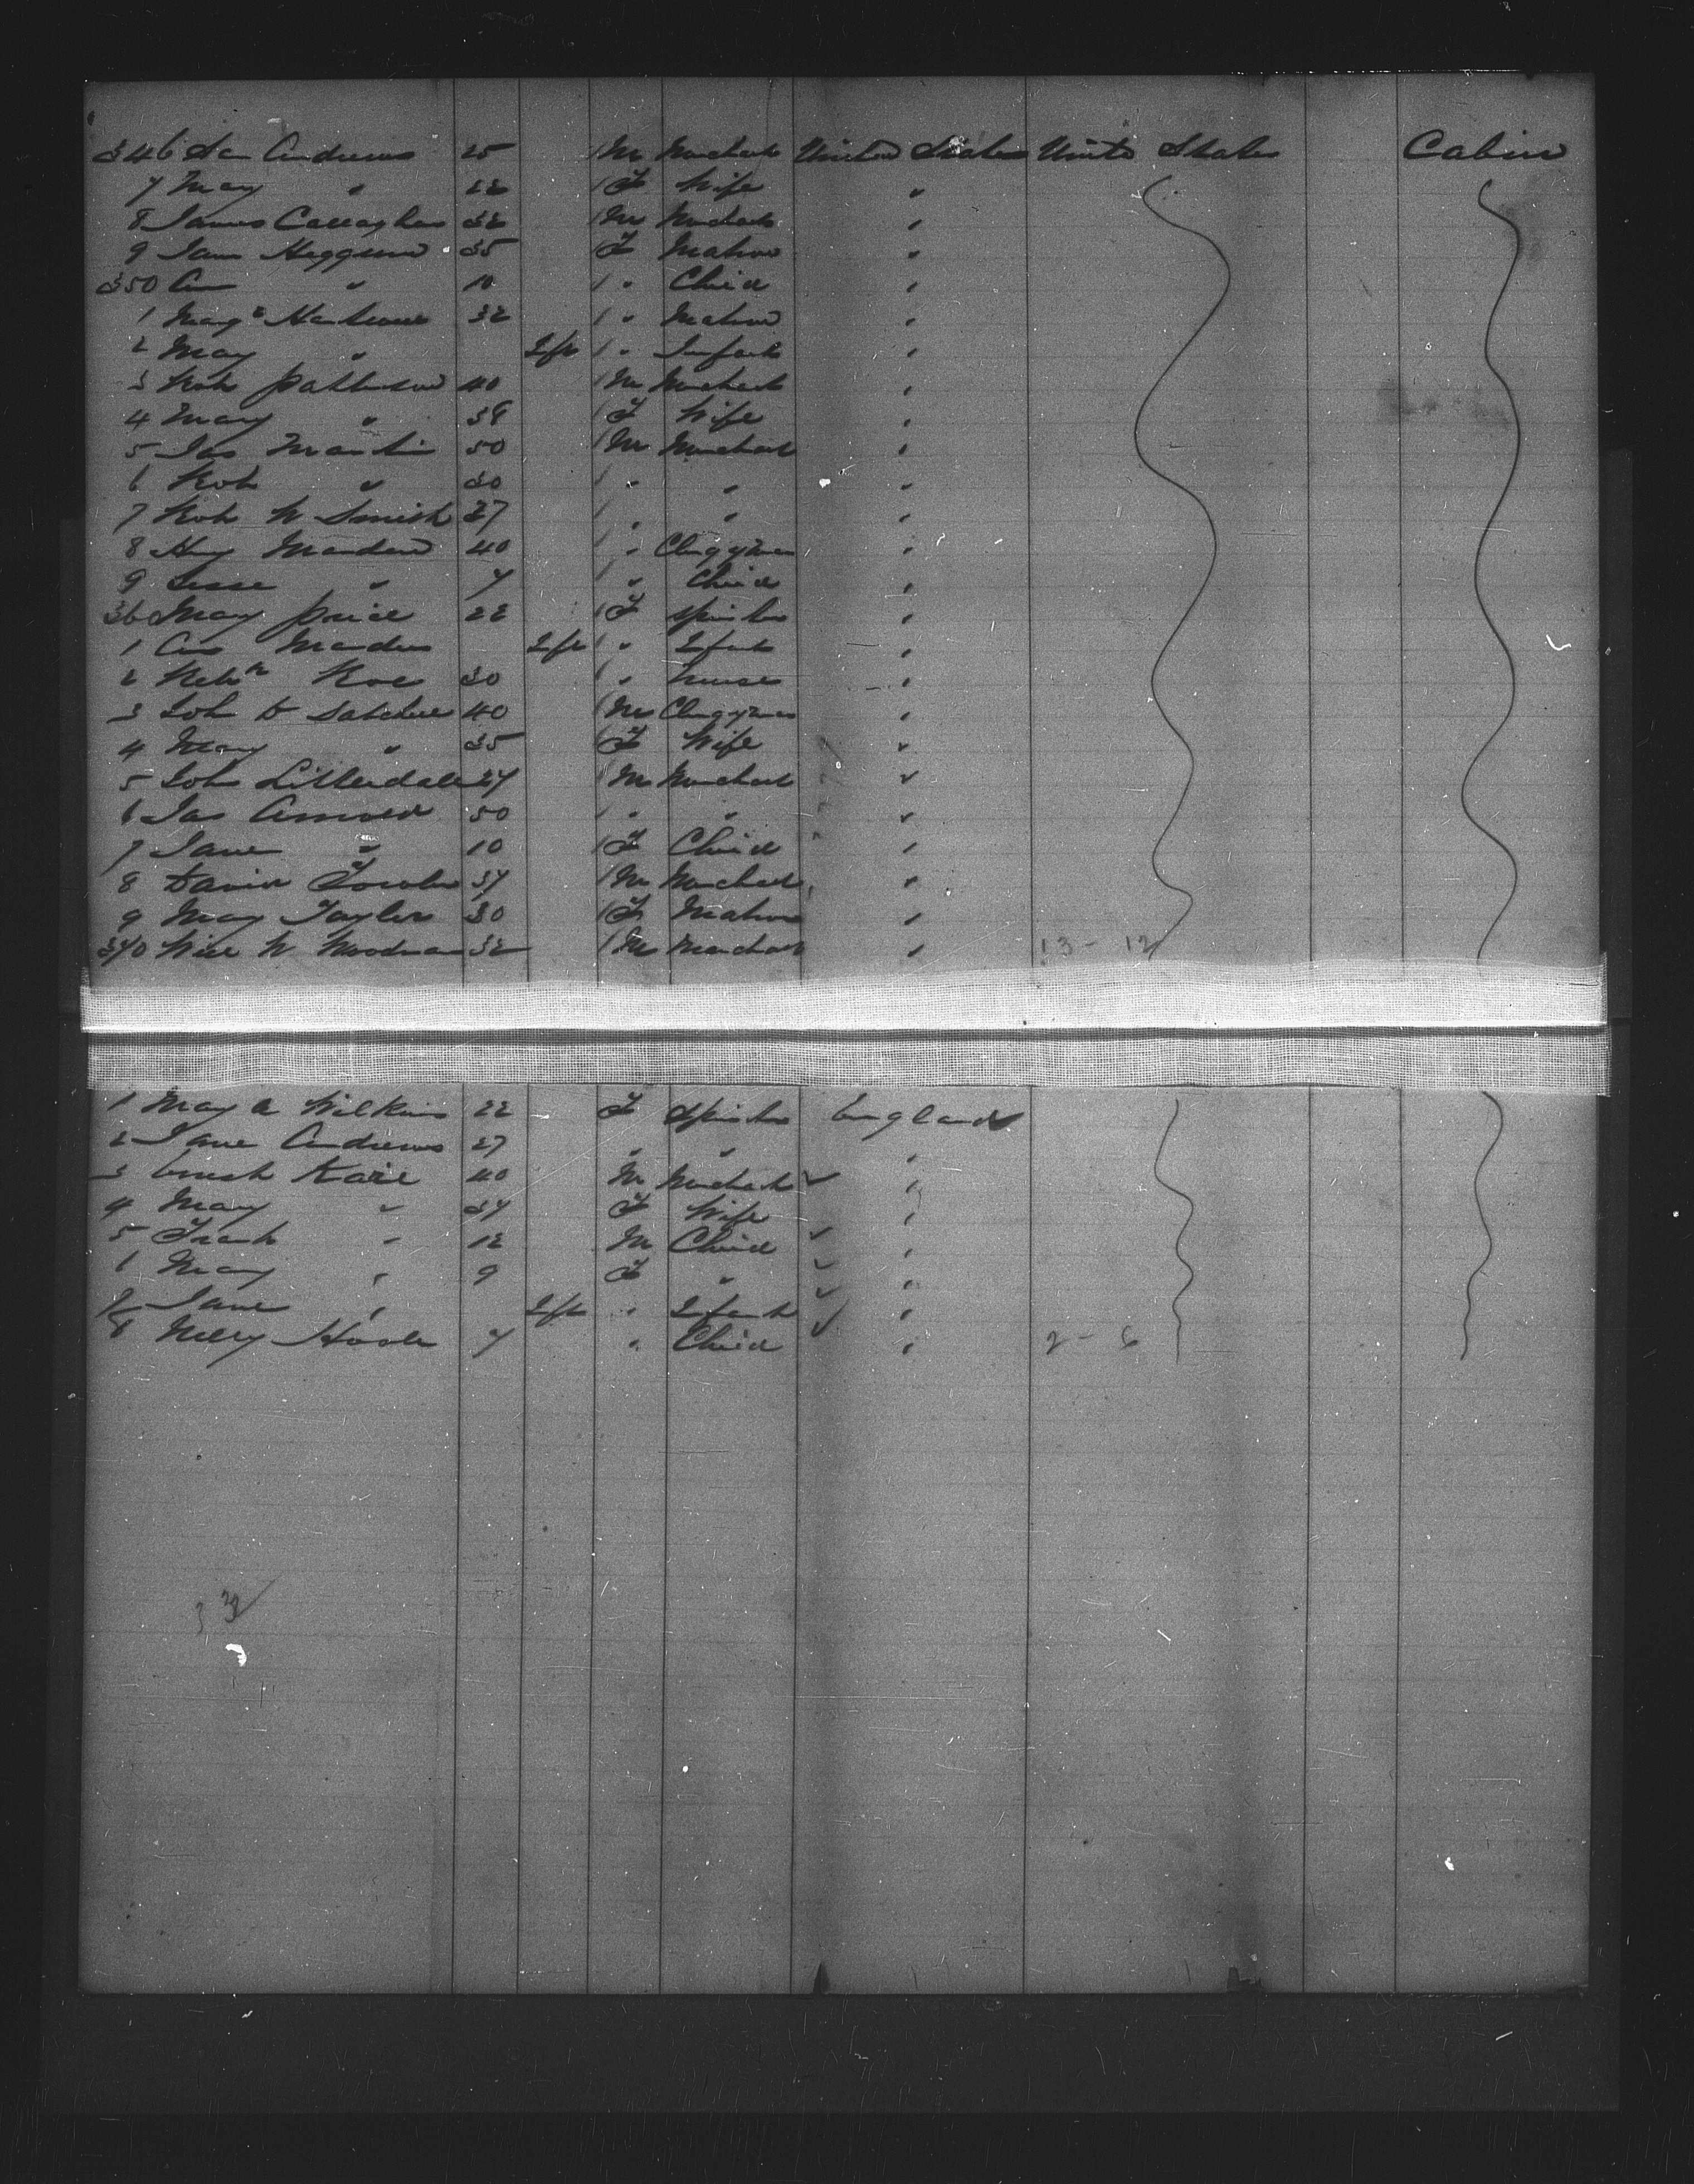 346 Sam Andrews 25 1 M Merchant United States United States Cabin
7 Mary " 22 1 F Wife "
8 James Callaghan 32 1 M Merchant "
9 Jane Heggum 35 F Matron "
350 Ann " 10 1 " Child "
1 Margt 32 1 " Matron "
2 Mary " Inft 1 " Infant "
3 Robt Patterson 40 1 M Merchant "
4 Mary " 39 1 F Wife "
5 Jas Martin 50 1 M Merchant "
6 Robt " 30 1 " " "
7 Robt W Smith 37 1 " " "
8 Hy Marsden 40 1 " Clergyman "
9 Jesse " 7 1 " Child "
360 Mary Price 22 1 F Spinster "
1 Ann Marsden Inft 1 " Infant "
2 Roe 30 1 " Nurse "
3 John D 40 1 M Clergyman "
4 Mary " 35 1 F Wife "
5 John Litterdale 27 1 M Merchant "
6 Jas Arnold 50 1 " " "
7 Jane " 10 1 F Child "
8 David 37 1 M Merchant "
9 Mary Taylor 30 1 F Matron "
370 Will W Woodman 32 1 M Merchant " 13 - 12
1 Mary A Wilkins 22 F Spinster England
2 Jane Andrews 27 " " "
3 40 M Merchant "
4 Mary " 37 F Wife "
5 Frank " 12 M Child "
6 Mary " 9 F " "
7 Jane " Inft " Infant "
8 Nelly 7 " Child " 2 - 6